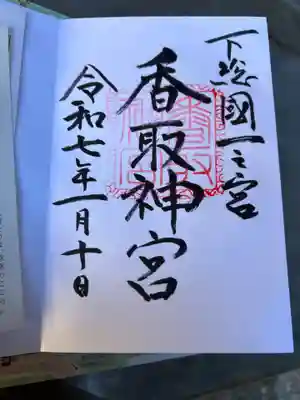 下総國一之宮
香取神宮
令和七年一月十日